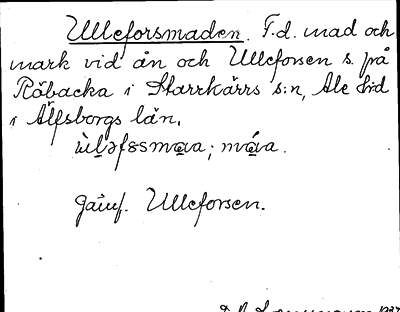 Ulleforsmaden. F.d. mad och
mark vid ån och Ulleforsen s. på
Råbacka i Starrkärrs s:n, Ale hd
i Älfsborgs län.
ùlǝfssmaa; máa.
Jämf. Ulleforsen.